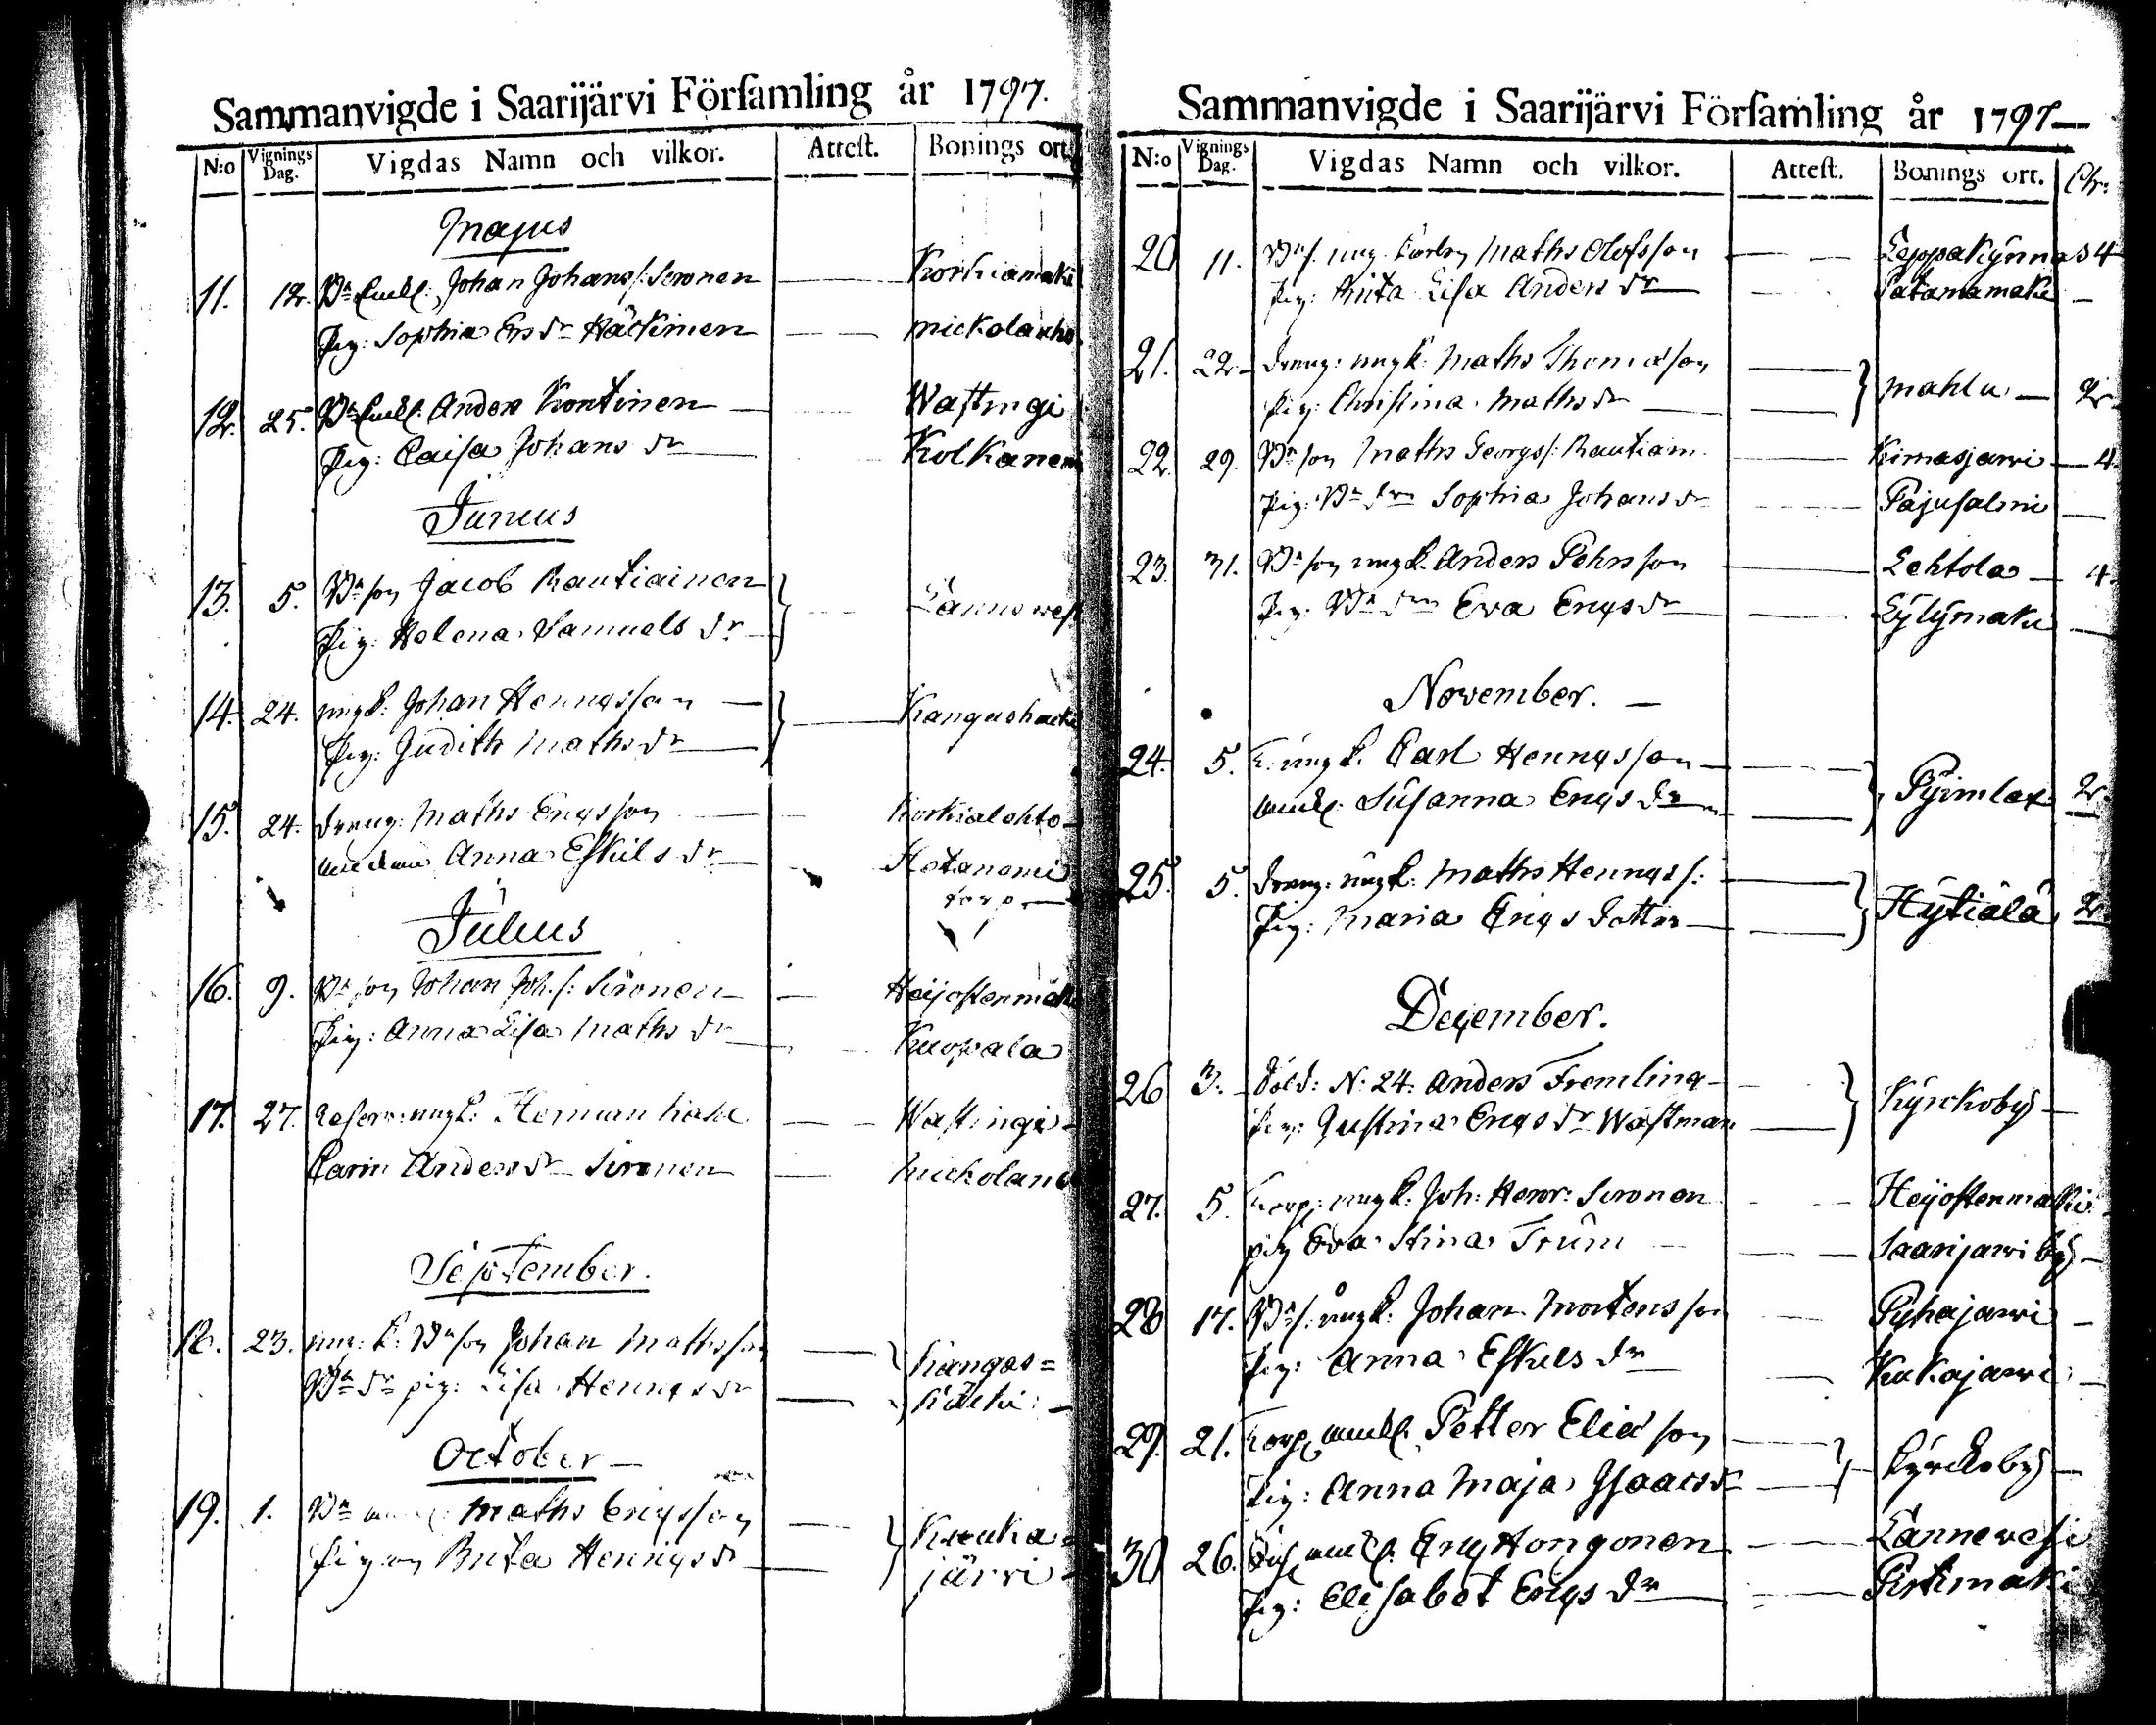 Sammanvigde i Saarijärvi Förſamling år 1797.
N:o Vignings Dag. Vigdas Namn och vilkor. Atteſt. Bonings ort.
Majus
11. 12. Johan Johans/: Sironen Korkiamäki
Pig: Sophia Ers dr Häckinen Mickola
12. 25. Anders Kontinen Waſtingi
Pig: Caisa Johans dr Kolkanem
Junius
13. 5. Bn son Jacob Rautiainen Lannewes
Pig: Helena Samuels dr
14. 24. ungk: Johan Henrigsson Kangashäcki
Pig: Judith Maths dr
15. 24. dreng: Maths Erigsson Korkialehto
Anna Eskils dr
torp
Julius
16. 9. Bn son Johan Joh. s: Sironen Heijostenmäki
Pig: Anna Lisa Maths dr Kuopala
17. 27. ungk: Herman Waſtingi
Carin Anders dr Sironen Mickolan
September.
18. 23. ung: k: Bn son Johan Mathsson Kangas=
Bn dr pig: Lisa Henrigs dr häcki
October
19. 1. Bn Maths Erigsson Kouka
Pigan Brita Henrigs dr järvi
Sammanvigde i Saarijärvi Förſamling år 1797
N:o Vignings Dag. Vigdas Namn och vilkor. Atteſt. Bonings ort. Chr:
20 11. Bn s. ung Maths Olofsson Leppäkynnas 4
Pig: Brita Lisa Anders dr Satamamäki
21. 22. dreng: ungk: Maths Thomasson Mahlu 2
Pig: Christina Maths dr
22. 29. Bn son Maths Georgs/: Rautiain Kimasjarvi 4.
Pig: Bn dr Sophia Johans dr Pajusalmi
23. 31. Bn son ungk. Anders Pehrsson Lehtola 4.
Pig: Bn dr Eva Erigs dr Lylymäki
November.
24. 5. ungk. Carl Henrigsson Pyimlax 2
Susanna Erigs dr
25. 5. dreng: ungk: Maths Henrigs/: Hytiälä 2
Pig: Maria Erigs Dotter
December.
26 3. Sold: N: 24. Anders Fremling Kyrckoby
Pig: Justina Erigs dr Wästman
27. 5. ungk: Joh: Henr: Sironen Heijostenmäki
pig Eva Stina Trüm Saarijarvi by
28 17. Bn s. ungk. Johan Mortensson Pyhäjarvi
Pig: Anna Eskils dr Kukajarvi
29. 21. Petter Eliasson Kyrckoby
Pig: Anna Maja Isaacs dr
30 26. Erig Hongonen Lannevesi
Pig: Elisabet Erigs dr Pirtimäki